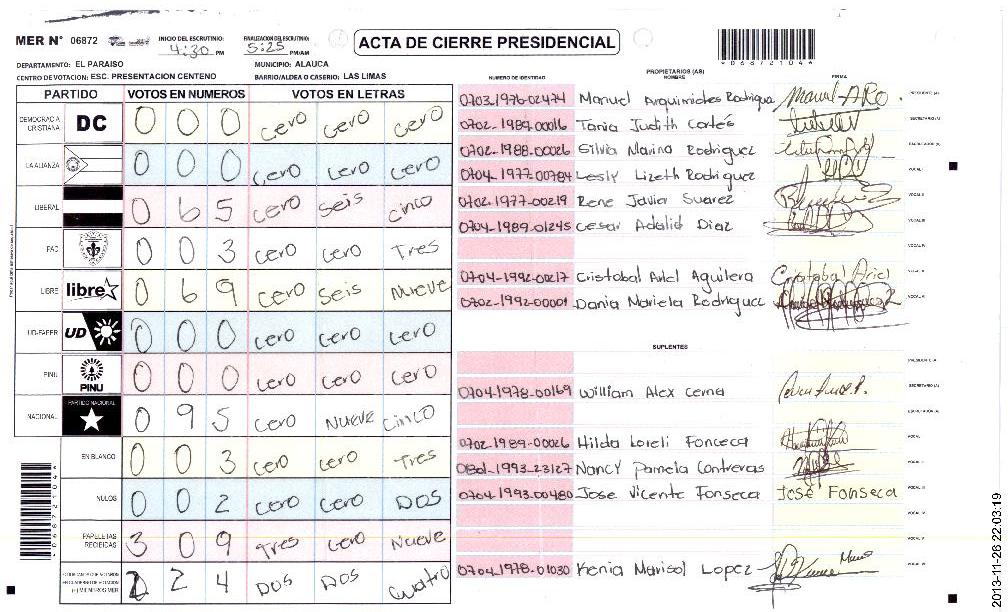 MER Nº 06872 INICIO DEL ESCRUTINIO: 4:30 PM FINALIZACION DEL ESCRUTINIO: 5:25 PM/AM ACTA DE CIERRE PRESIDENCIAL *06872104*
DEPARTAMENTO: EL PARAISO MUNICIPIO: ALAUCA
CENTRO DE VOTACION: ESC. PRESENTACION CENTENO BARRIO/ALDEA O CASERIO: LAS LIMAS
PARTIDO VOTOS EN NUMEROS VOTOS EN LETRAS
DEMOCRACIA CRISTIANA DC 0 0 0 cero cero cero
LA ALIANZA 0 0 0 cero cero cero
LIBERAL 0 6 5 cero seis cinco
PAC 0 0 3 cero cero Tres
LIBRE libre 0 6 9 cero seis Nueve
UD-FAPER UD 0 0 0 cero cero cero
PINU PINU 0 0 0 cero cero cero
NACIONAL PARTIDO NACIONAL 0 9 5 cero NUEVE CINCO
EN BLANCO 0 0 3 cero cero Tres
NULOS 0 0 2 cero cero DOS
PAPELETAS RECIBIDAS 3 0 9 Tres cero Nueve
2 2 4 DOS DOS cuatro
NUMERO DE IDENTIDAD PROPIETARIOS (AS) NOMBRE FIRMA
0703-1976-02474 Manuel Arquimides Rodrigue Manuel ARO.
0702-1989-00016 Tania Judith Cortés
0702-1988-00026 Silvia Marina Rodriguez
0704-1977-00784 Lesly Lizeth Rodriguez
0702-1977-00219 Rene Javier Suarez
0704-1989-01245 Cesar Adalid Diaz
0704-1992-00217 Cristobal Ariel Aguilera Cristobal Ariel
0702-1992-00001 Dania Mariela Rodriguez
SUPLENTES
0704-1978-00169 William Alex Cerna
0702-1989-00026 Hilda Loreli Fonceca
0801-1993-23127 Nancy Pamela Contreras
0704-1993-00480 Jose Vicente Fonseca José Fonseca
0704-1978-01030 Kenia Marisol Lopez
*06872104*
2013-11-26 22:03:19